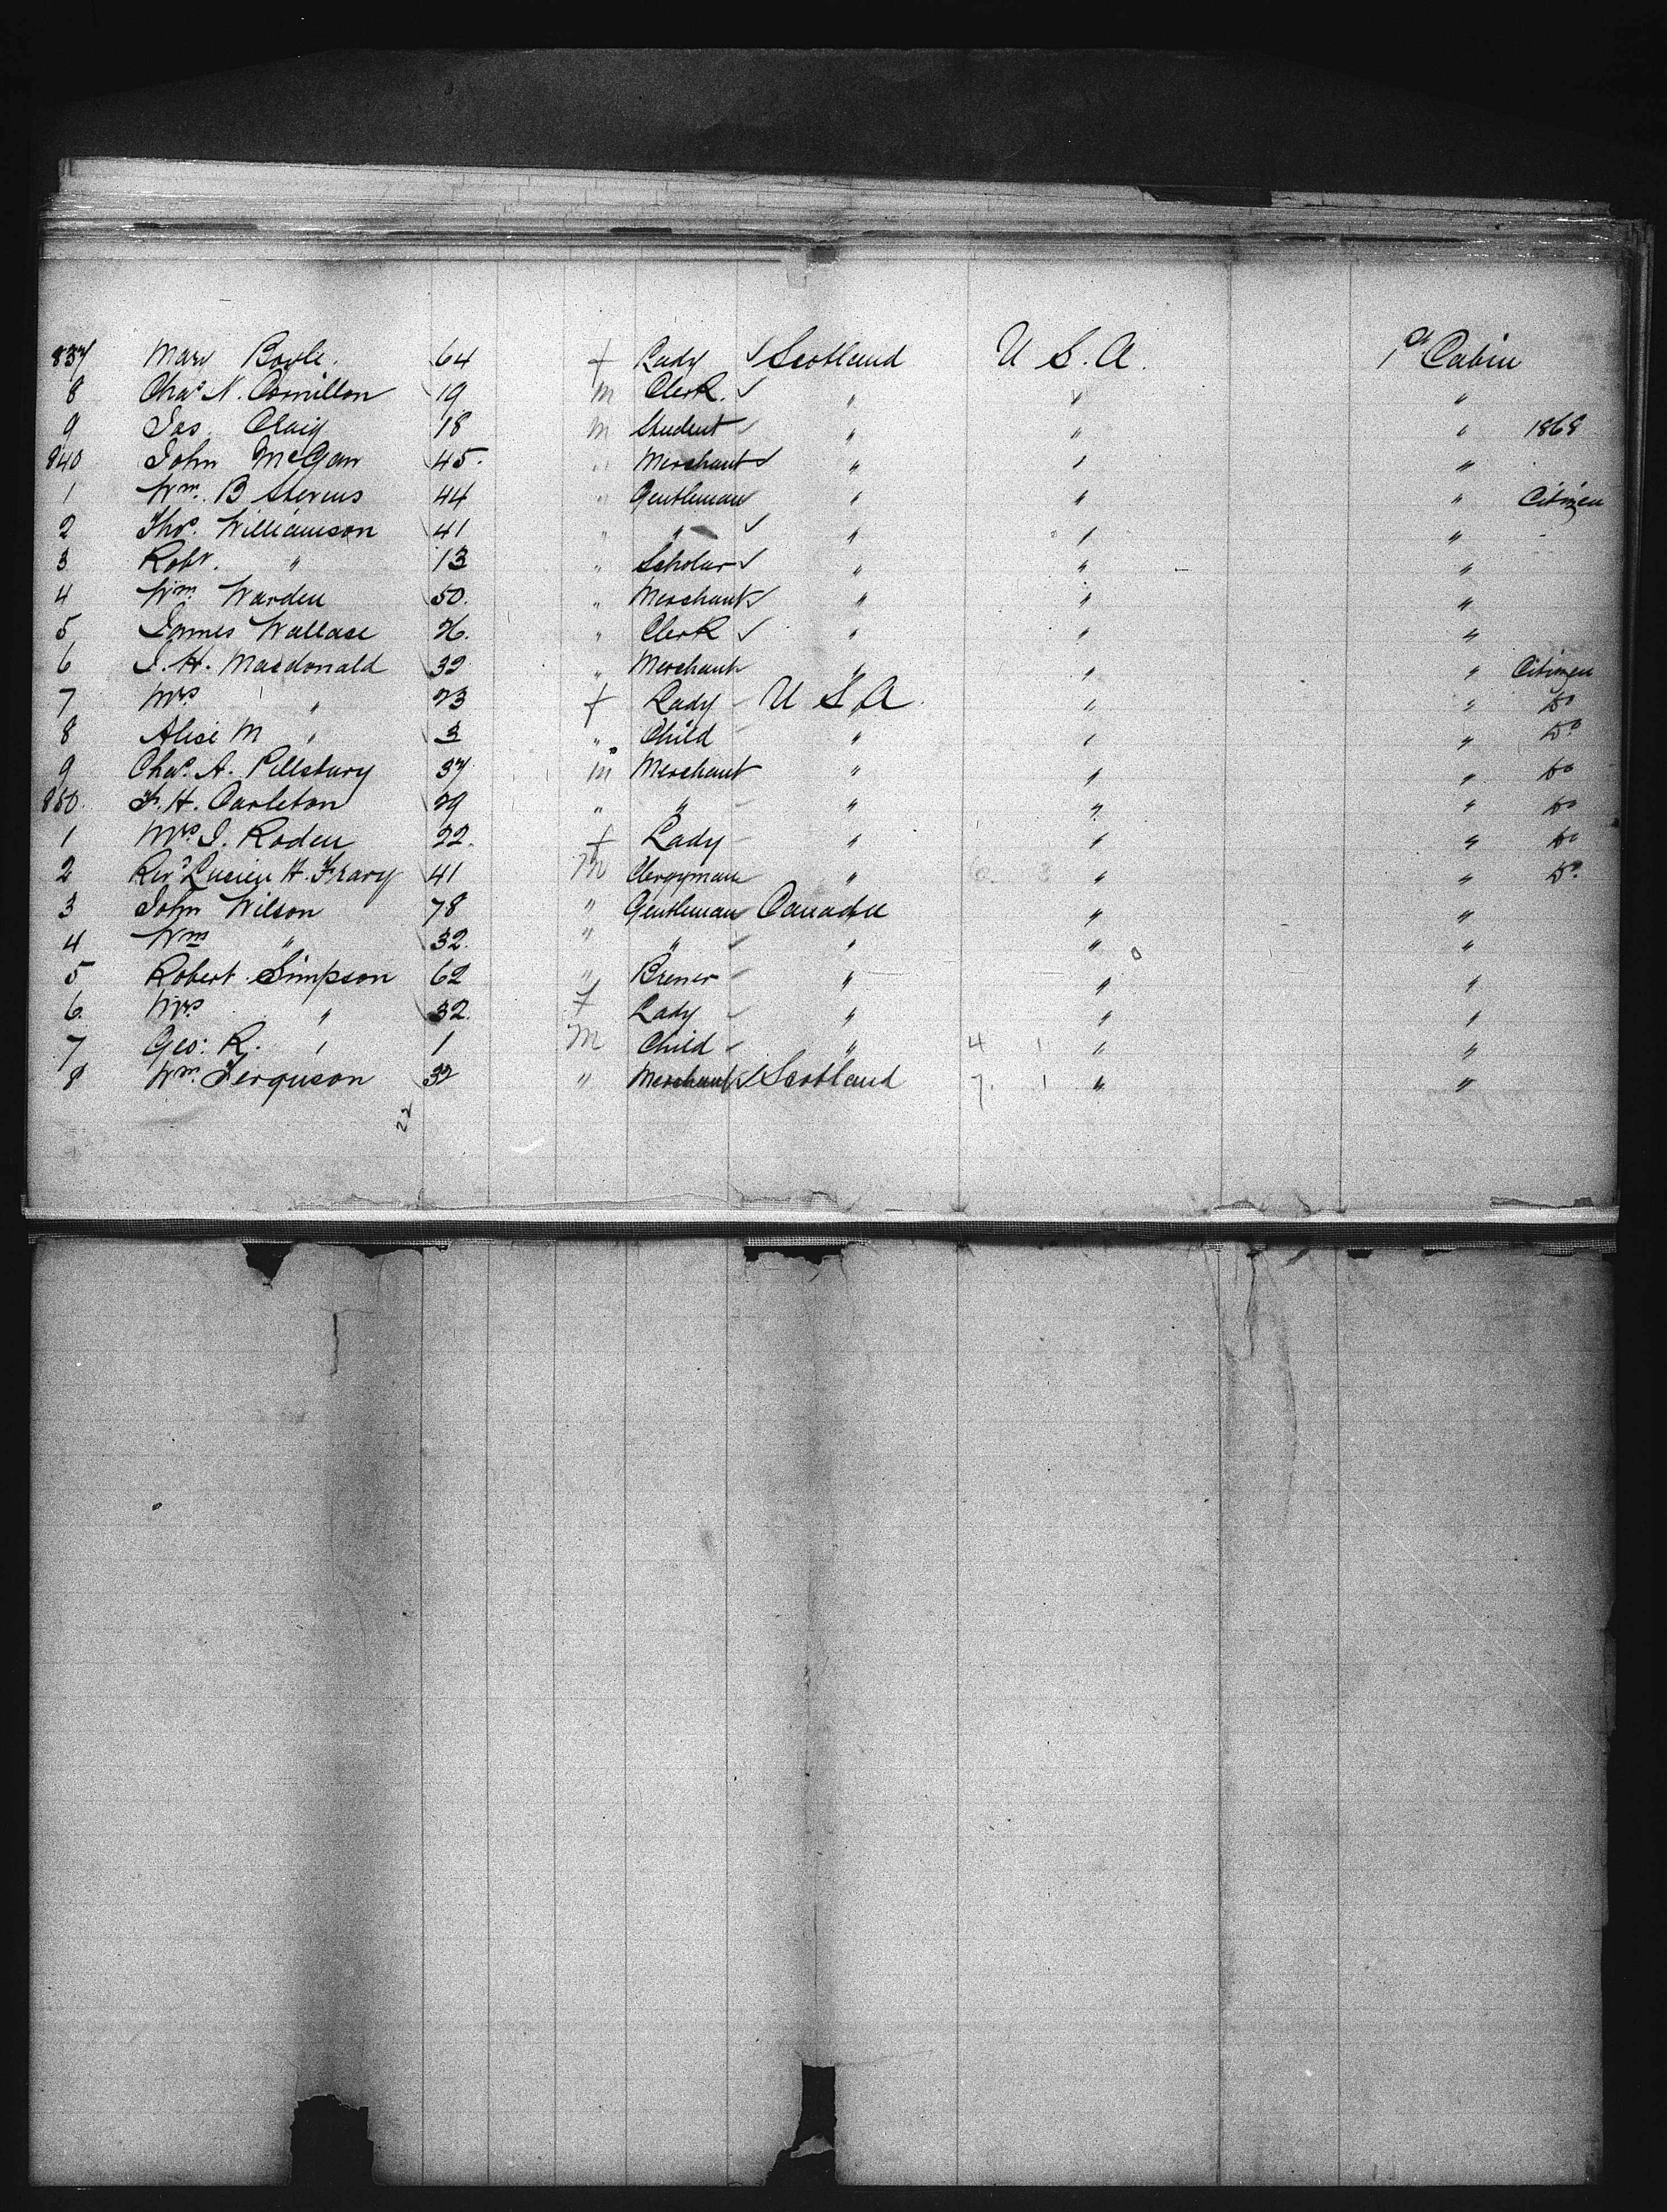 837 Mary Boyle. 64 f Lady Scotland U S. A. 1st Cabin
8 Chas N. Cornillon 19 m Clerk. " " "
9 Jas. Craig 18 m Student " " " 1868
840 John McGaw 45. " Merchant " " "
1 Wm. B Stevens 44 " Gentleman " " " Citizen
2 Thos. Williamson 41 " " " " "
3 Robt. " 13 " Scholar " " "
4 Wm. Warden 50. " Merchant " " "
5 James Wallace 26. " Clerk " " "
6 J. H. Macdonald 32 " Merchant " " " Citizen
7 Mrs " 23 f Lady U S A " " Do
8 Alice M " 3 " Child " " " Do
9 Chas. A. Pillsbury 37 m Merchant " " " Do
850. F. H. Carleton 29 " " " " " Do
1 Mrs J. Roden 22. f Lady " " " Do
2 Revd Lucien H. Frary 41 M Clergyman " " " Do.
3 John Wilson 78 " Gentleman Canada " "
4 Wm " 32. " " " " "
5 Robert Simpson 62 " Brewer " " "
6. Mrs " 32. f Lady " " "
7 Geo: R. " 1 M Child " 4 1 " "
8 Wm. Ferguson 32 " Merchant Scotland 7. 1 " "
22